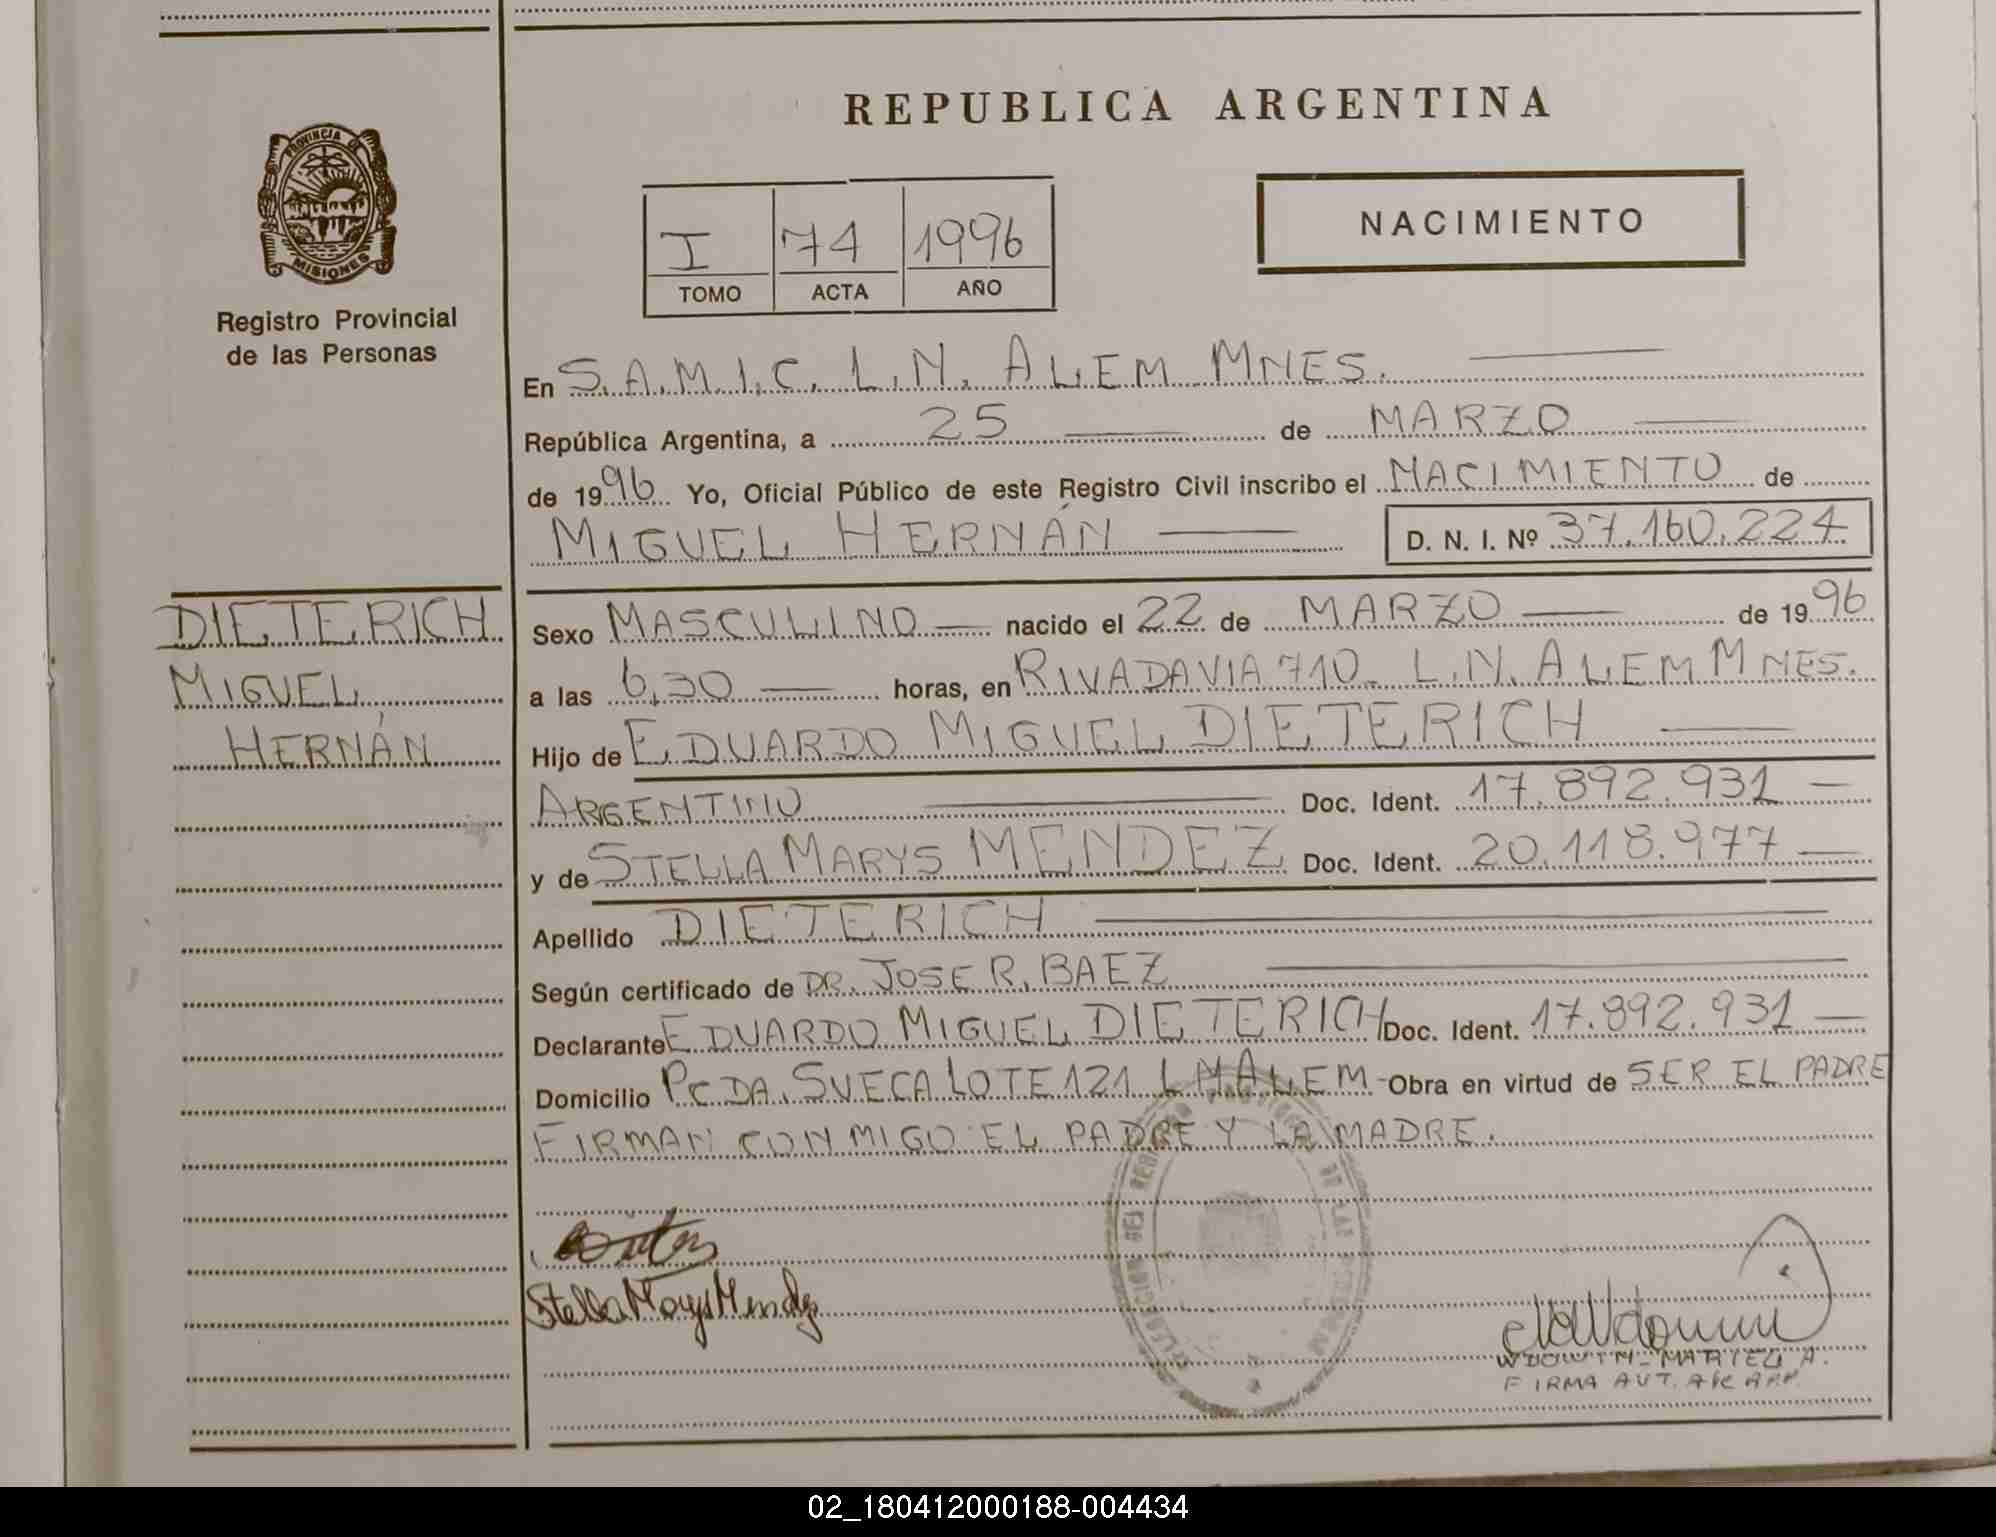 REPUBLICA ARGENTINA
PROVINCIA DE
MISIONES
Registro Provincial
de las Personas
I 74 1996
TOMO ACTA AÑO
NACIMIENTO
En S.A.M.I.C. L.N. ALEM MNES.
República Argentina, a 25 de MARZO
de 1996 Yo, Oficial Público de este Registro Civil inscribo el NACIMIENTO de
MIGUEL HERNÁN D. N. I. Nº 37.160.224
DIETERICH
MIGUEL
HERNÁN
Sexo MASCULINO nacido el 22 de MARZO de 1996
a las 6,30 horas, en RIVADAVIA 710 L.N. ALEM MNES.
Hijo de EDUARDO MIGUEL DIETERICH
ARGENTINO Doc. Ident. 17.892.931
y de STELLA MARYS MENDEZ Doc. Ident. 20.118.977
Apellido DIETERICH
Según certificado de DR. JOSE R. BAEZ
Declarante EDUARDO MIGUEL DIETERICH Doc. Ident. 17.892.931
Domicilio PCDA. SUECA LOTE 121 L N ALEM - Obra en virtud de SER EL PADRE
FIRMAN CONMIGO EL PADRE Y LA MADRE.
Stella Marys Mendez
FIRMA AUT.
02_180412000188-004434